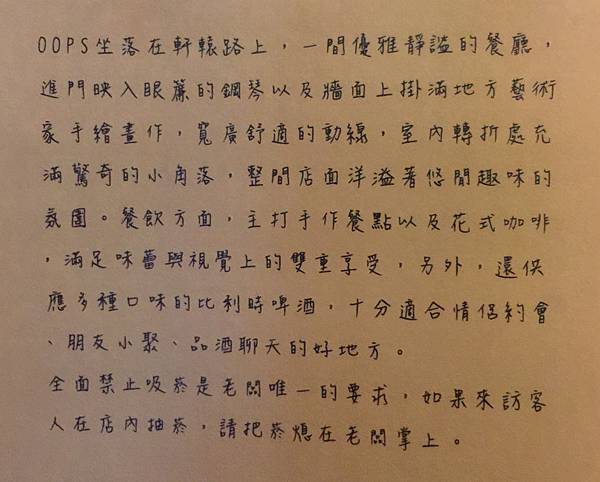 OOPS坐落在軒轅路上，一間優雅靜謐的餐廳，
進門映入眼簾的鋼琴以及牆面上掛滿地方藝術
家手繪畫作，寬廣舒適的動線，室內轉折處充
滿驚奇的小角落，整間店面洋溢著悠閒趣味的
氛圍。餐飲方面，主打手作餐點以及花式咖啡
，滿足味蕾與視覺上的雙重享受，另外，還供
應多種口味的比利時啤酒，十分適合情侶約會
、朋友小聚、品酒聊天的好地方。
全面禁止吸菸是老闆唯一的要求，如果來訪客
人在店內抽菸，請把菸熄在老闆掌上。